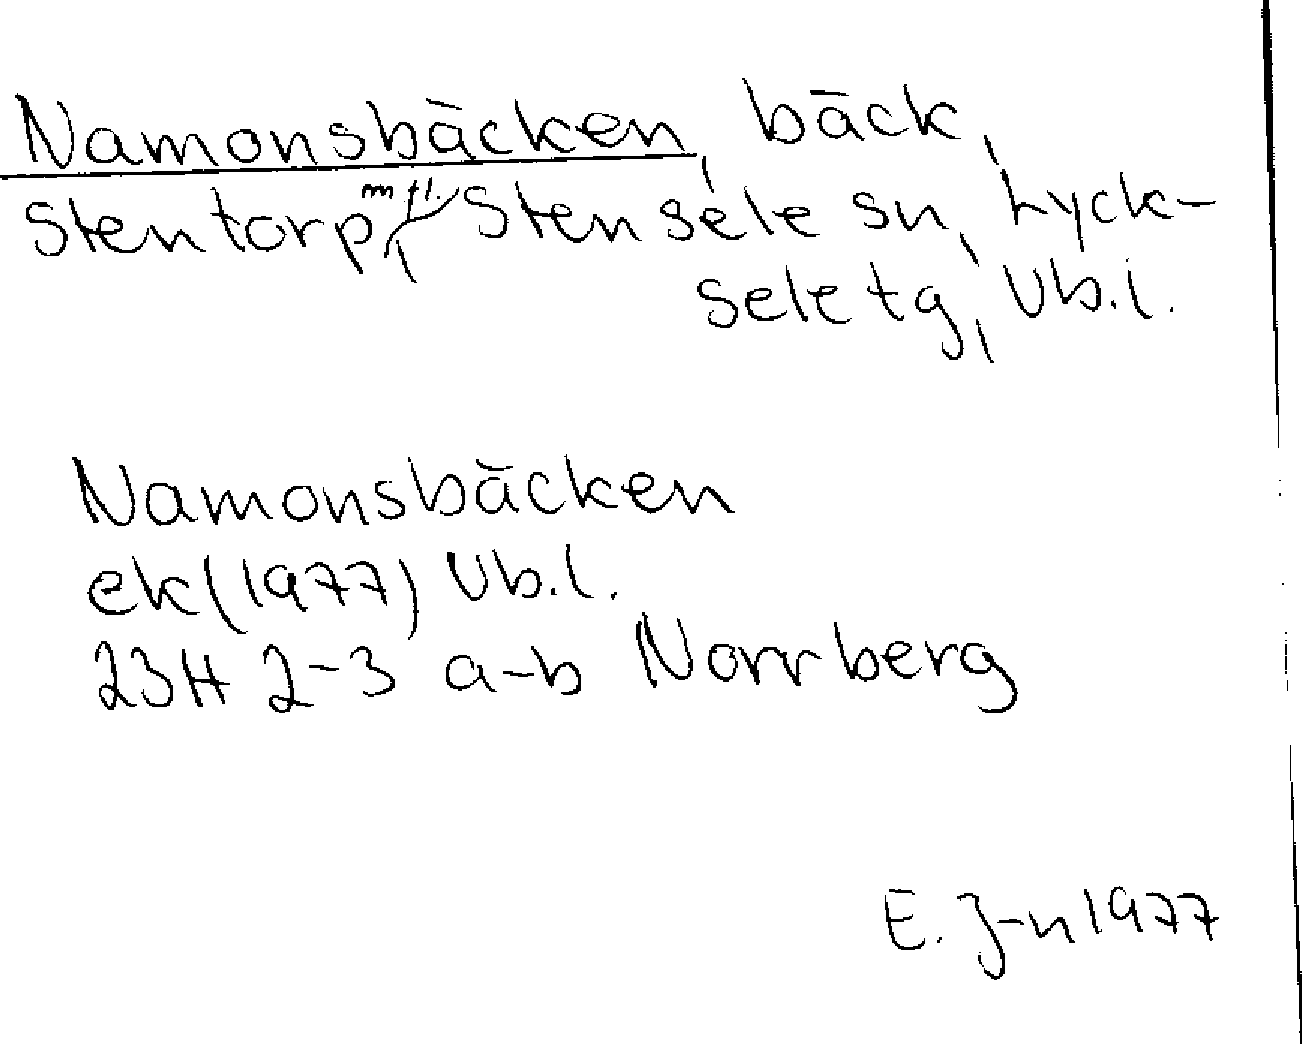 Namonsbäcken, bäck,
Stentorp m fl., Stensele sn, Lyck-
sele tg, Vb.l.
Namonsbäcken
ek (1977) Vb.l.
23H 2-3 a-b Norrberg
E. J-n 1977